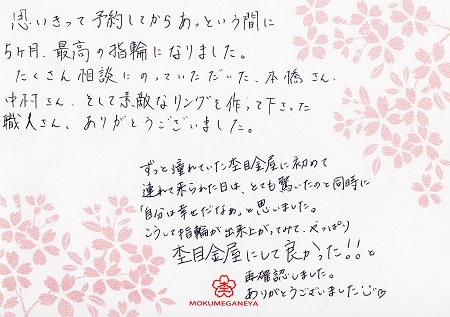 思いきって予約してからあっという間に
5ヶ月、最高の指輪になりました。
たくさん相談にのっていただいた、本橋さん、
中村さん、そして素敵なリングを作って下さった
職人さん、ありがとうございました。
ずっと憧れていた杢目金屋に初めて
連れて来られた日は、とても驚いたのと同時に
「自分は幸せだなぁ」と思いました。
こうして指輪が出来上がってみて、やっぱり
杢目金屋にして良かった!!と
再確認しました。
ありがとうございました
MOKUMEGANEYA